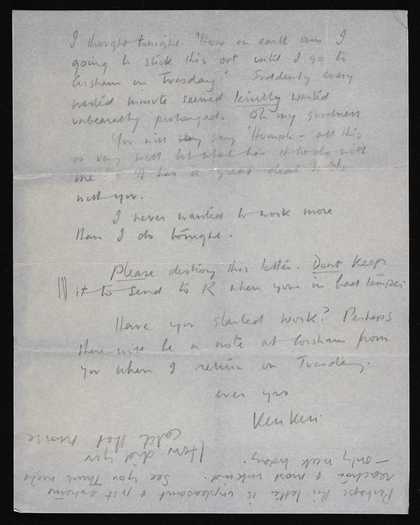 I thought tonight "How on earth am I
going to stick this out until I go to
Corsham on Tuesday?" Suddenly every
wasted minute seemed wasted
unbearably prolonged. Oh my goodness
You will say 'Humph - all this
is very well but what has it to do with
me' It has a great deal to do
with you.
I never wanted to work more
than I do tonight.
Please destroy this letter. Dont keep
it to send to R when your in bad temper
Have you started work? Perhaps
there will be a note at Corsham from
you when I return on Tuesday.
ever yrs
Ken
Perhaps this letter is unpleasant & just extreme
reaction & most unkind. See you Thurs week
- only week today.
How did you
catch that